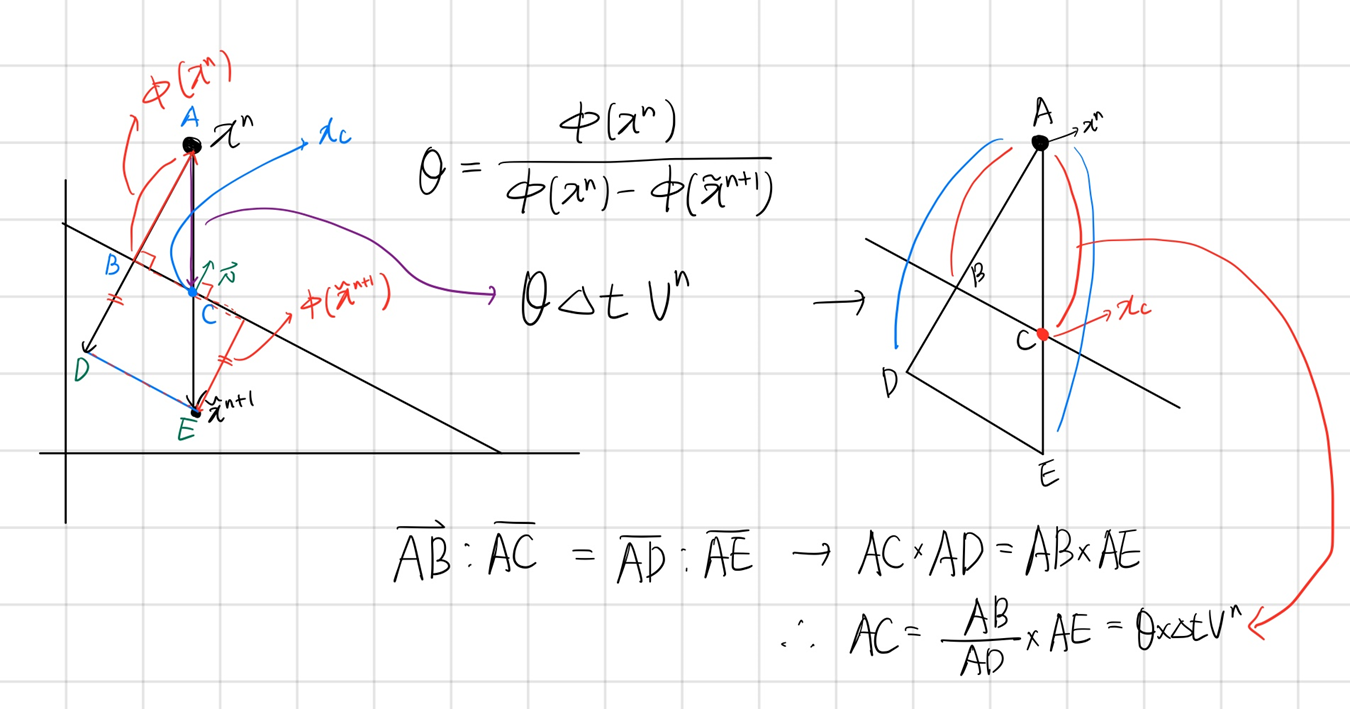 ϕ(xⁿ)
A
xⁿ
x_c
B
N⃗
C
ϕ(x̃ⁿ⁺¹)
D
x̃ⁿ⁺¹
E
θ = ϕ(xⁿ) / (ϕ(xⁿ) − ϕ(x̃ⁿ⁺¹))
θ Δt Vⁿ
→
A
xⁿ
B
C
x_c
D
E
A͞B͞ : A͞C͞ = A͞D͞ : A͞E͞ → AC × AD = AB × AE
∴ AC = AB / AD × AE = θ × Δt Vⁿ